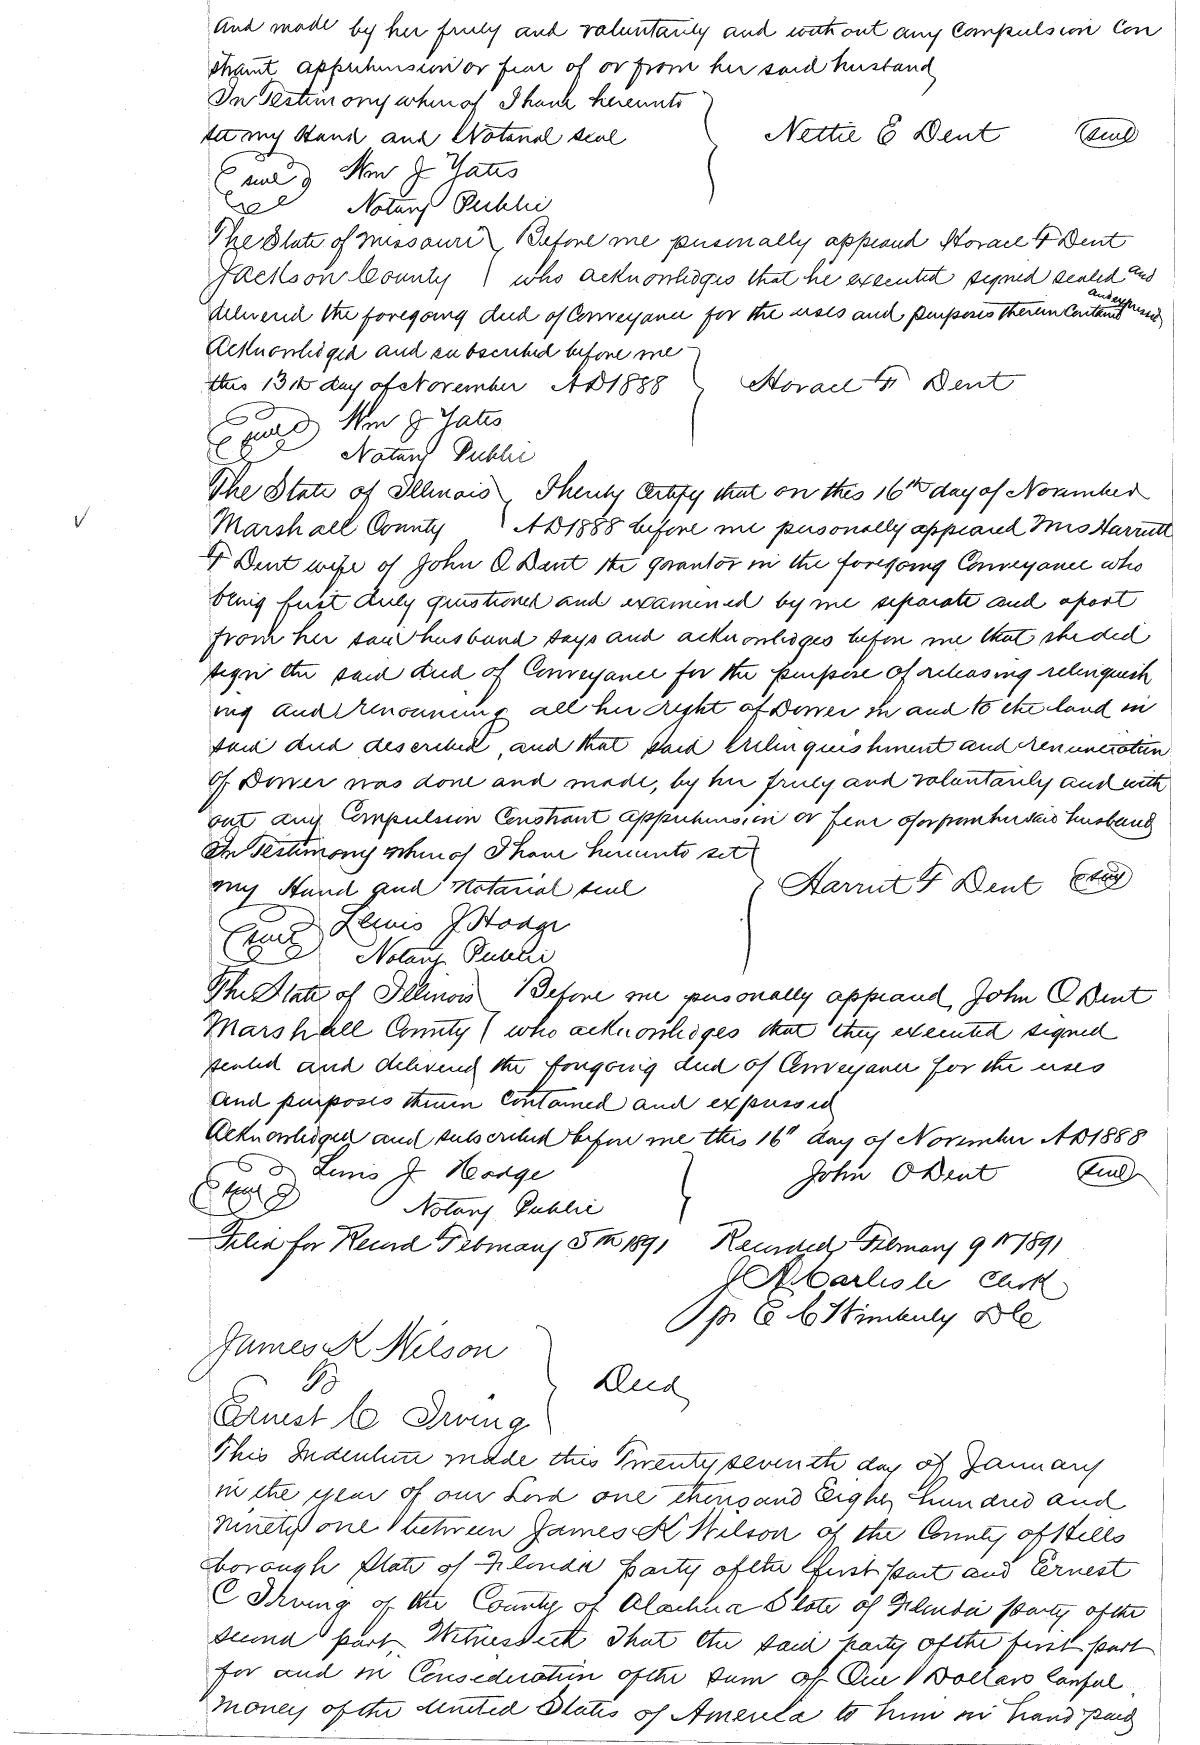 and made by her freely and voluntarily and without any Compulsion Con
straint apprehension or fear of or from her said husband
In Testimony whereof I have hereunto
set my Hand and Notarial seal
Nettie E Dent seal
seal Wm J Yates
Notary Public
The State of Missouri Before me personally appeared Horace F Dent
Jackson County who acknowledges that he executed signed sealed and
delivered the foregoing deed of Conveyance for the uses and purposes therein Contained and expressed
Acknowledged and subscribed before me
this 13th day of November AD 1888 Horace F Dent
seal Wm J Yates
Notary Public
The State of Illinois I hereby Certify that on this 16th day of November
Marshall County AD 1888 before me personally appeared Mrs Harriett
F Dent wife of John O Dent the grantor in the foregoing Conveyance who
being first duly questioned and examined by me separate and apart
from her said husband says and acknowledges before me that she did
sign the said deed of Conveyance for the purpose of releasing relinquish
ing and renouncing all her right of Dower in and to the land in
said deed described, and that said relinquishment and renunciation
of Dower was done and made, by her freely and voluntarily and with
out any Compulsion Constraint apprehension or fear of or from her said husband
In Testimony whereof I have hereunto set
my Hand and Notarial seal Harriet F Dent seal
seal Lewis J Hodge
Notary Public
The State of Illinois Before me personally appeared, John O Dent
Marshall County who acknowledges that they executed signed
sealed and delivered the foregoing deed of Conveyance for the uses
and purposes therein Contained and expressed
Acknowledged and subscribed before me this 16" day of November AD 1888
seal Lewis J Hodge John O Dent seal
Notary Public
Filed for Record February 5th 1891 Recorded February 9th 1891
J A Carlisle Clerk
pr E C Wimberly DC
James K Wilson
To Deed
Ernest C Irving
This Indenture made this Twenty seventh day of January
in the year of our Lord one thousand Eighty hundred and
ninety one between James K Wilson of the County of Hills
borough State of Florida party of the first part and Ernest
C Irving of the County of Alachua State of Florida party of the
second part, Witnesseth That the said party of the first part
for and in Consideration of the sum of One Dollars lawful
money of the United States of America to him in hand paid